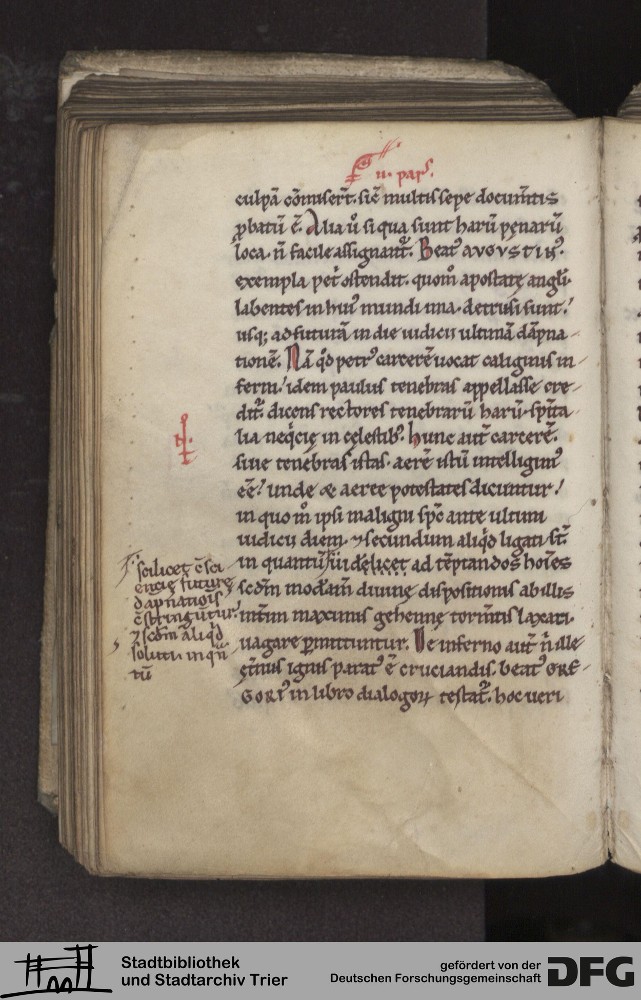 .ii. pars.
culpā cōmisert̄. sic̄ multis sepe documt̄is
p̱batū ē. Alia ů si qua sunt harū pęnarū
loca. n̄ facile assignant᷑. Beat᷒ AVGVSTIN᷒.
exempla pet̄ ostendit. quom̄ apostatę angli.
labentes in hui᷒ mundi ima. detrusi sunt.
usq; ad futurā in die iudicii ultimā dāpna-
tionē. Nā q̇d petr᷒ carcerē uocat caliginis in-
ferni. idem paulus tenebras appellasse cre-
dit᷑. dicens rectores tenebrarū harū. sp̄ita-
lia neq̇cię in cęlestib᷒. hunc aut̄ carcerē.
siue tenebras istas. aerē istū intelligim᷒
eē. unde & aeree potestates dicuntur.
in quo m̊ ipsi maligni sp̄c ante ultimi
iudicii diem. ⁊ secundum aliq̇d ligati st̄.
in quantū uidelicet ad tēptandos hoīes
scdm̄ modam̄ diuinę dispositionis ab illis
intim maximis gehennę tormt̄is laxati.
uagare p̱mittuntur. De inferno aut̄ n̄ ille
qm̄uis ignis parat᷒ ē cruciandis. beat᷒ GRE-
GORI᷒ in libro dialogoꝝ testat᷑. hoc ueri
scilicet ē sci
encię futurę
dāpnationis
ēstringūtur.
⁊ scdm̄ aliq̇d
soluti. in qn̄
tū
Stadtbibliothek
und Stadtarchiv Trier
gefördert von der
Deutschen Forschungsgemeinschaft
DFG